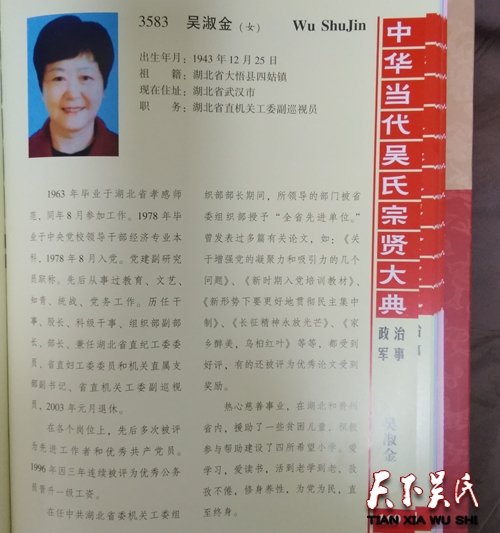 3583 吴淑金（女） Wu ShuJin
出生年月：1943年12月25日
祖 籍：湖北省大悟县四姑镇
现在住址：湖北省武汉市
职 务：湖北省直机关工委副巡视员
1963年毕业于湖北省孝感师
范，同年8月参加工作。1978年毕
业于中央党校领导干部经济专业本
科，1978年8月入党。党建副研究
员职称。先后从事过教育、文艺、
知青、统战、党务工作。历任干
事、股长、科级干事、组织部副部
长、部长、兼任湖北省直纪工委委
员、省直妇工委委员和机关直属支
部副书记、省直机关工委副巡视
员，2003年元月退休。
在各个岗位上，先后多次被评
为先进工作者和优秀共产党员。
1996年因三年连续被评为优秀公务
员晋升一级工资。
在任中共湖北省委机关工委组
织部部长期间，所领导的部门被省
委组织部授予“全省先进单位。”
曾发表过多篇有关论文，如：《关
于增强党的凝聚力和吸引力的几个
问题》、《新时期入党培训教材》、
《新形势下要更好地贯彻民主集中
制》、《长征精神永放光芒》、《家
乡醉美，乌桕红叶》等等，都受到
好评，有的还被评为优秀论文受到
奖励。
热心慈善事业，在湖北和贵州
省内，援助了一些贫困儿童，积极
参与帮助建设了四所希望小学。爱
学习，爱读书，活到老学到老，孜
孜不倦，修身养性，为党为民，直
至终身。
中华当代吴氏宗贤大典
政治
军事
吴淑金
天下吴氏
TIAN XIA WU SHI